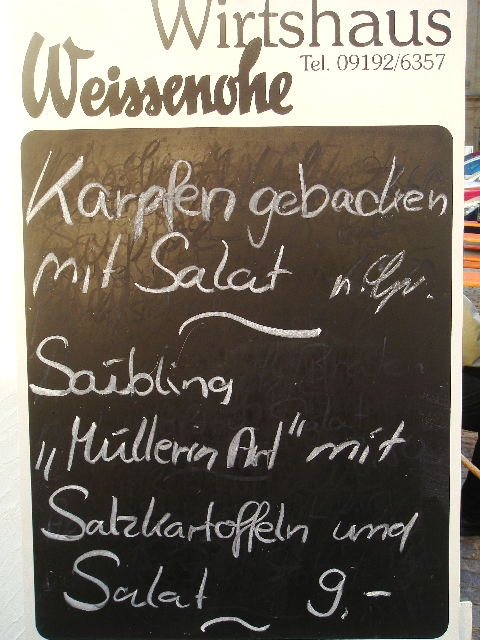 Wirtshaus
Weissenohe Tel. 09192/6357
Karpfen gebacken
mit Salat
Saibling
„Müllerin Art" mit
Salzkartoffeln und
Salat 9,-